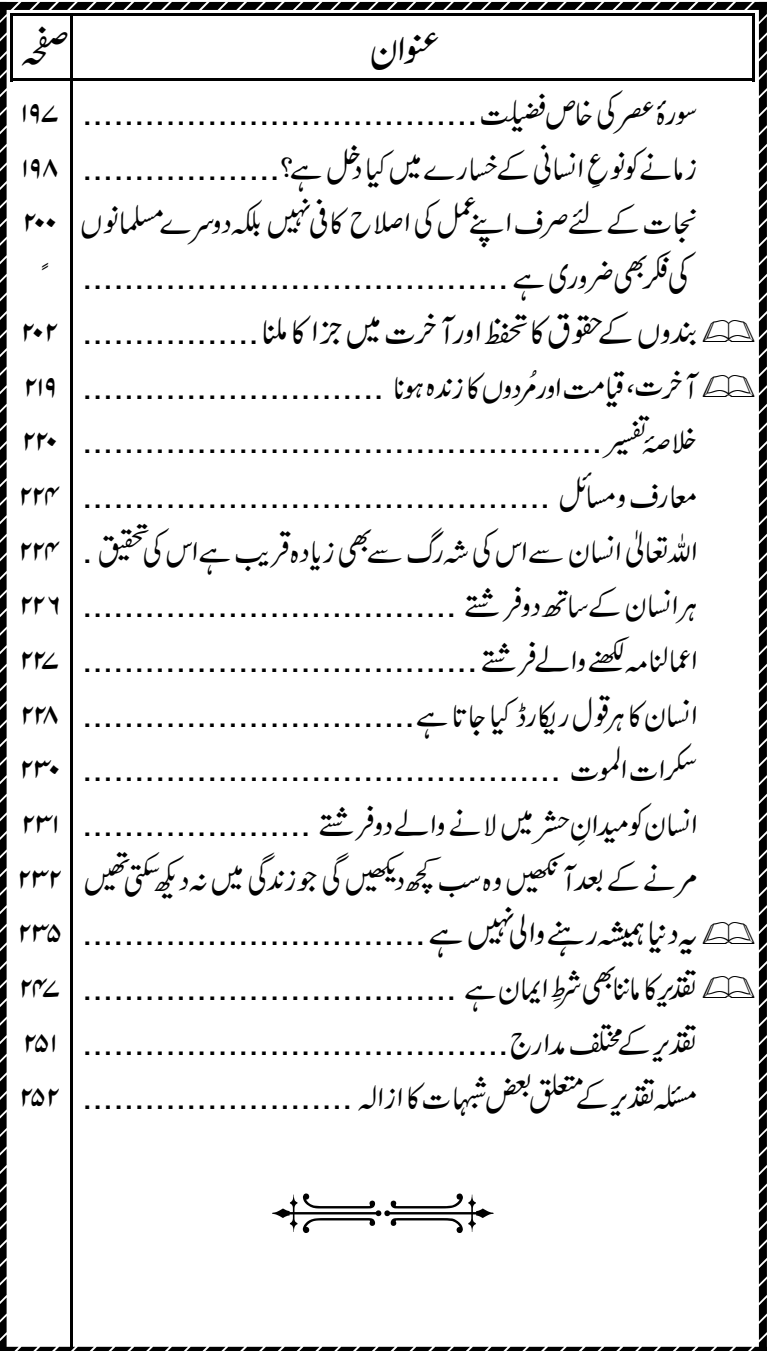 عنوان صفحہ
سورۂ عصر کی خاص فضیلت ................................... ۱۹۷
زمانے کو نوعِ انسانی کے خسارے میں کیا دخل ہے؟ ................... ۱۹۸
نجات کے لئے صرف اپنے عمل کی اصلاح کافی نہیں بلکہ دوسرے مسلمانوں ۲۰۰
کی فکر بھی ضروری ہے ......................................... ً
بندوں کے حقوق کا تحفظ اور آخرت میں جزا کا ملنا ................. ۲۰۲
آخرت، قیامت اور مُردوں کا زندہ ہونا ............................. ۲۱۹
خلاصۂ تفسیر .................................................. ۲۲۰
معارف ومسائل ............................................. ۲۲۴
اللہ تعالیٰ انسان سے اس کی شہ رگ سے بھی زیادہ قریب ہے اس کی تحقیق . ۲۲۴
ہر انسان کے ساتھ دو فرشتے .................................... ۲۲۶
اعمالنامہ لکھنے والے فرشتے ...................................... ۲۲۷
انسان کا ہر قول ریکارڈ کیا جاتا ہے ................................ ۲۲۸
سکرات الموت .............................................. ۲۳۰
انسان کو میدانِ حشر میں لانے والے دو فرشتے ...................... ۲۳۱
مرنے کے بعد آنکھیں وہ سب کچھ دیکھیں گی جو زندگی میں نہ دیکھ سکتی تھیں ۲۳۲
یہ دنیا ہمیشہ رہنے والی نہیں ہے ................................. ۲۳۵
تقدیر کا ماننا بھی شرطِ ایمان ہے .................................... ۲۴۷
تقدیر کے مختلف مدارج ......................................... ۲۵۱
مسئلہ تقدیر کے متعلق بعض شبہات کا ازالہ .......................... ۲۵۲